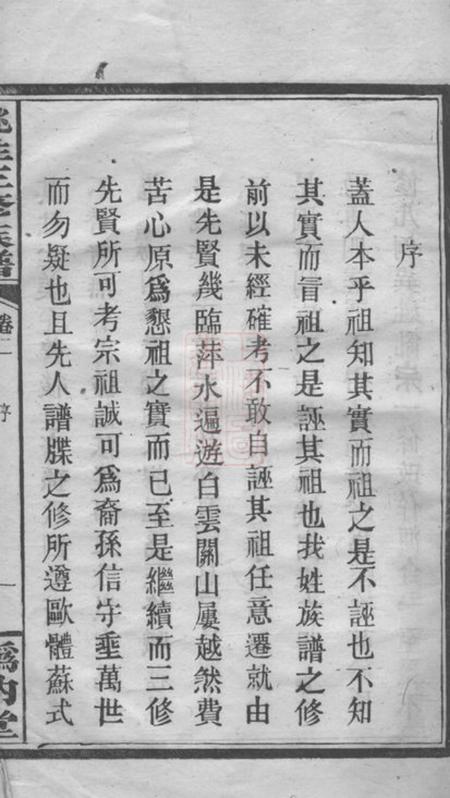 序
蓋人本乎祖知其實而祖之是不誣也不知
其實而冒祖之是誣其祖也我姓族譜之修
前以未經確考不敢自誣其祖任意遷就由
是先賢幾臨萍水遍遊白雲關山屢越然費
苦心原爲懇祖之實而已至是繼續而三修
先賢所可考宗祖誠可爲裔孫信守垂萬世
而勿疑也且先人譜牒之修所遵歐體蘇式
姓三修族譜
卷二
序